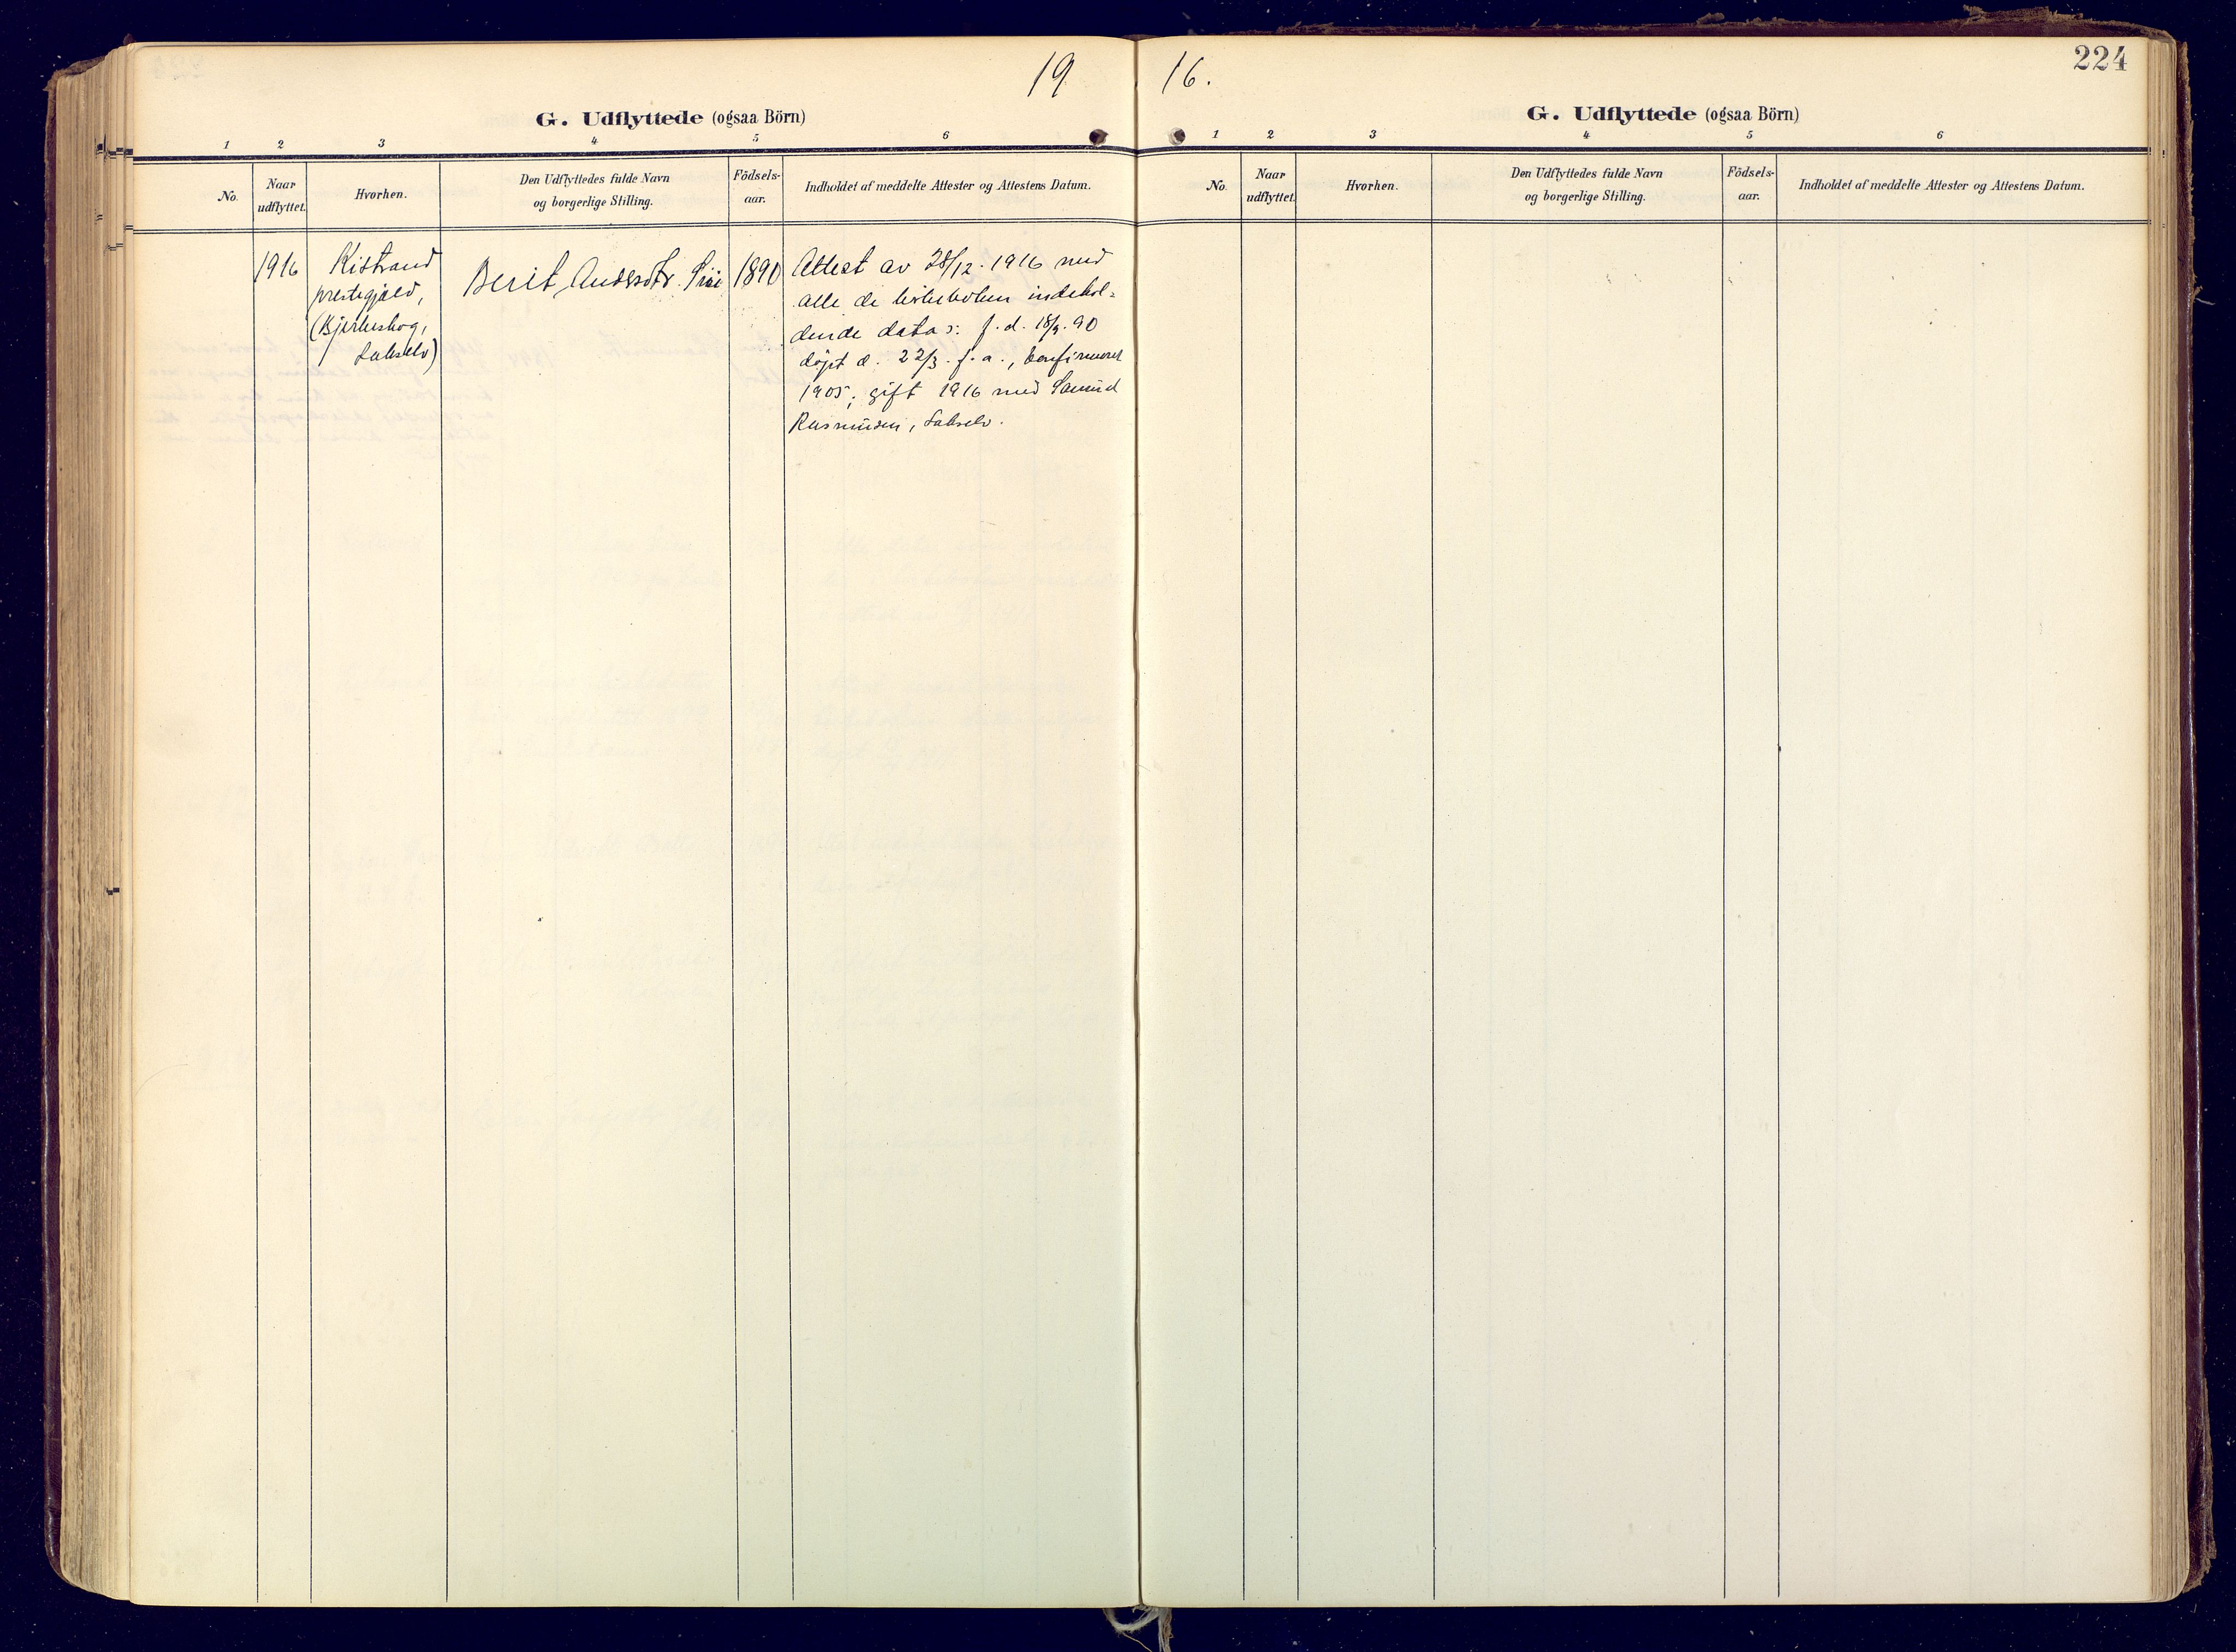 19 16.
224
G. Udflyttede (ogsaa Börn)
1 2 3 4 5 6
No.
Naar udflyttet.
Hvorhen.
Den Udflyttedes fulde Navn og borgerlige Stilling.
Födsels-aar.
Indholdet af meddelte Attester og Attestens Datum.
1916
Kistrand
prestegjæld,
(Bjerkeskog,
Lakselv)
Berit Andersdtr.
1890
Attest av 28/12. 1916 med
alle de kirkeboken indehol-
dende data: f. d. 18/9. 90
døpt d. 22/3. f. a., konfirmeret
1905; gift 1916 med Samuel
Rasmusen, Lakselv.
G. Udflyttede (ogsaa Börn)
1 2 3 4 5 6
No.
Naar udflyttet.
Hvorhen.
Den Udflyttedes fulde Navn og borgerlige Stilling.
Födsels-aar.
Indholdet af meddelte Attester og Attestens Datum.